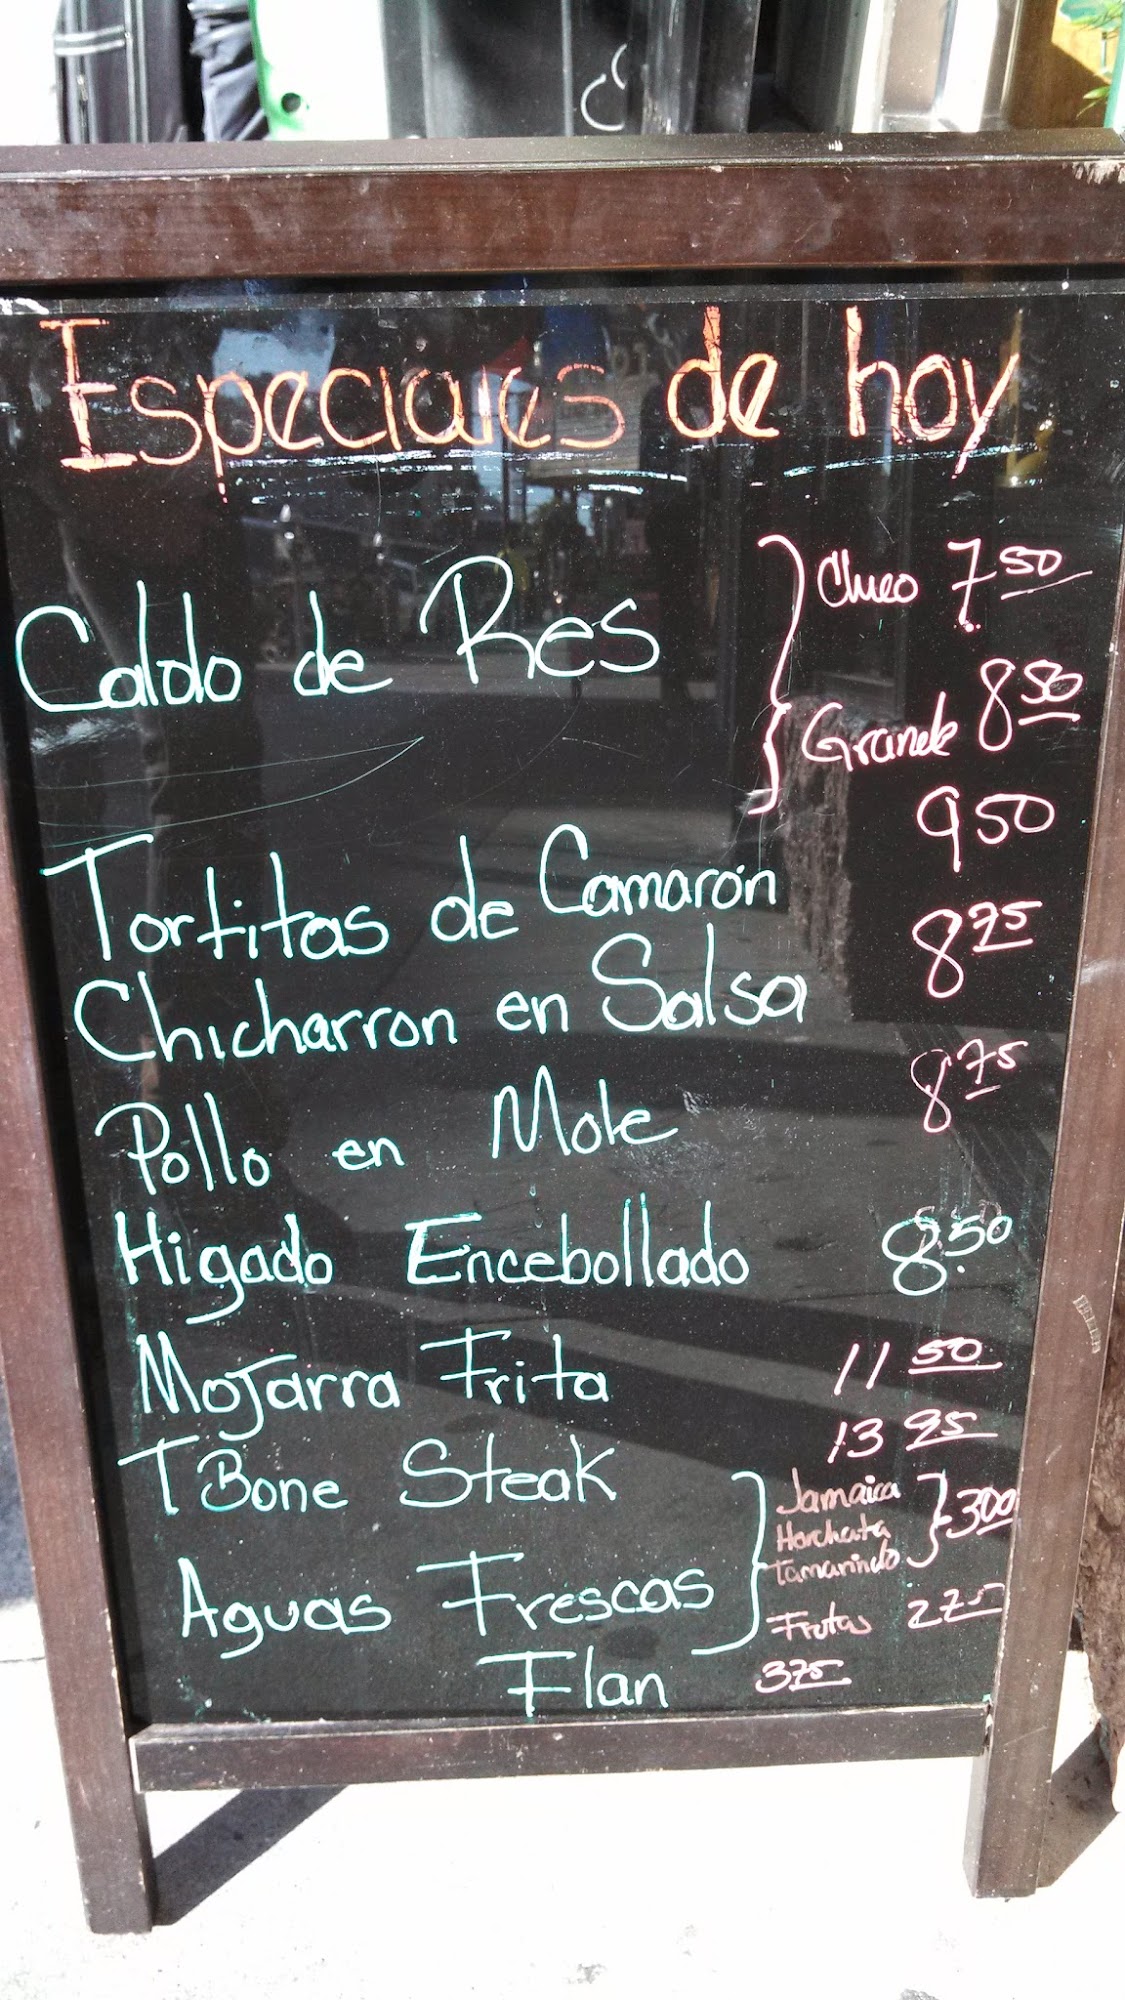 Especiales de hoy
Caldo de Res
Chico 7.50
Grande 8 50
Tortitas de Camarón 9 50
Chicharron en Salsa 8 75
Pollo en Mole 8 75
Higado Encebollado 8.50
Mojarra Frita 11 50
T Bone Steak 13 95
Aguas Frescas
Jamaica
Horchata
Tamarindo
3 00
Frutas 2 75
Flan 3 75